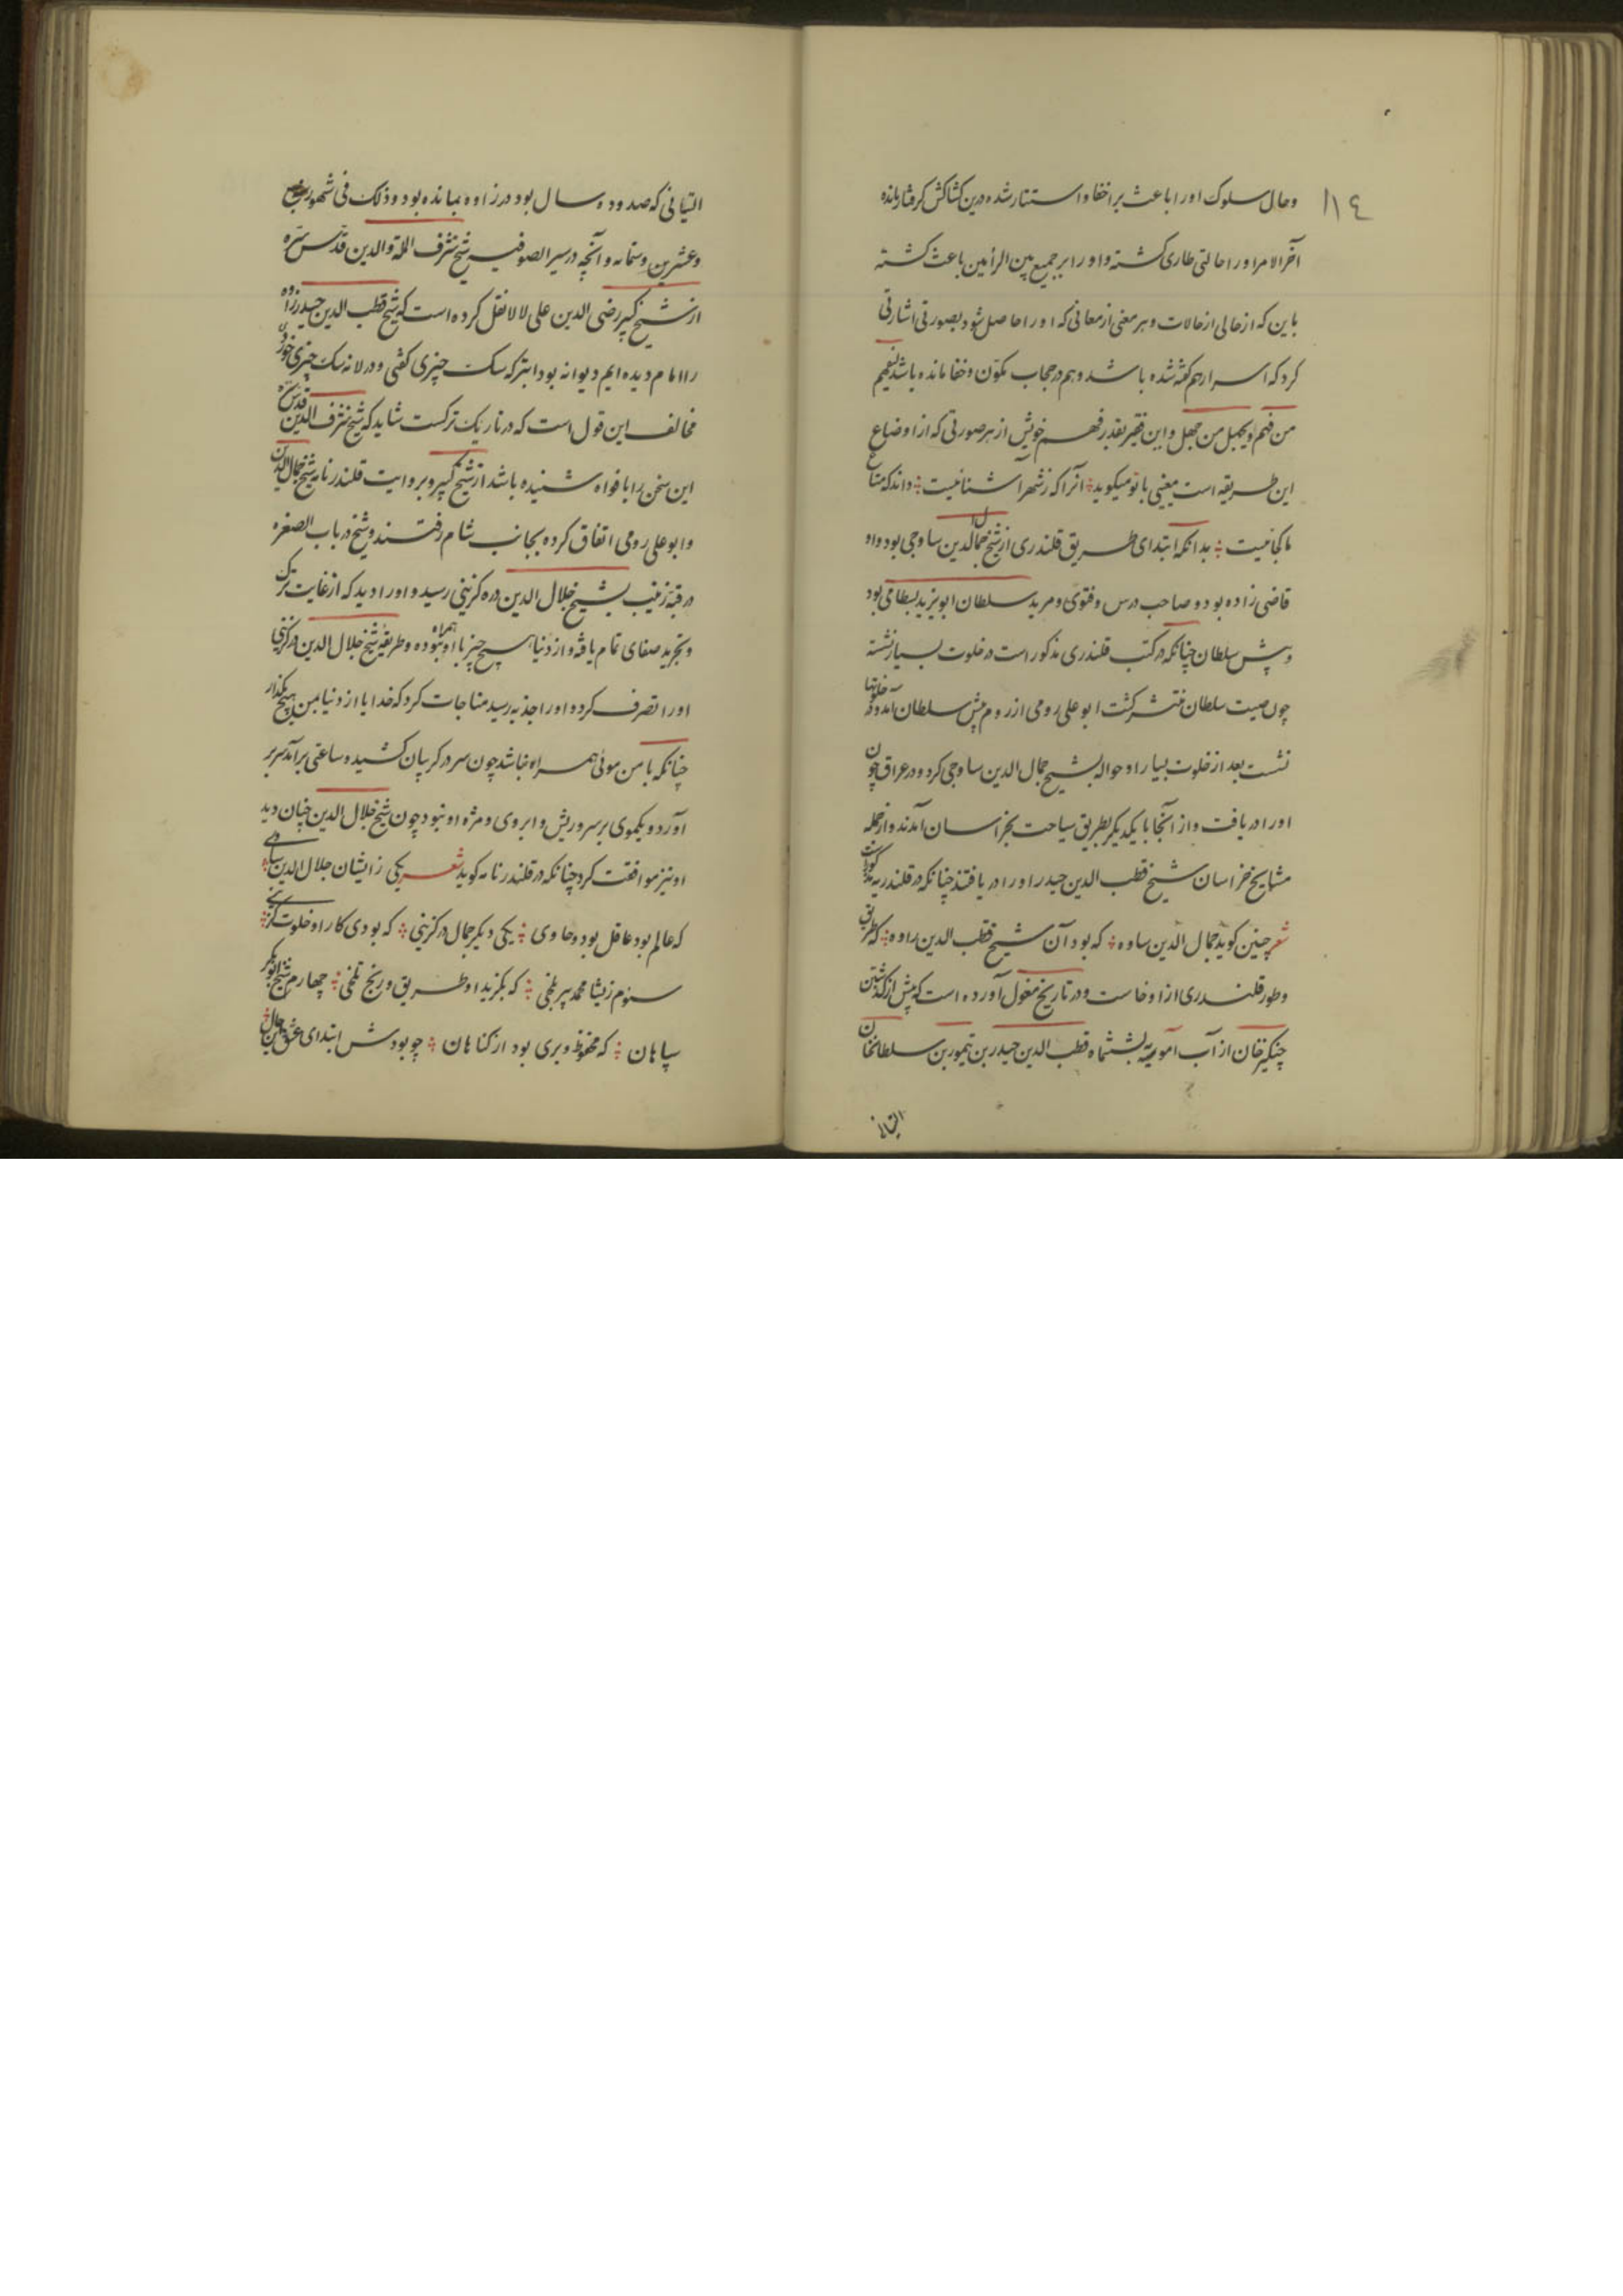 ۱۱٤
وحال سلوک اورا باعث بر اخفا و استتار شده درین کشاکش گرفتار مانده
آخر الامر اورا حالتی طاری گشته و اورا بر جمیع بین الرأیین باعث گشته
باین که از حالی از حالات و هر معنی از معانی که اورا حاصل شود بصورتی اشارتی
کرد که اسرار هم گفته شده باشد و هم در حجاب مکون و خفا مانده باشد یفهم
من فهم و یجهل من جهل و این فقیر بقدر فهم خویش از هر صورتی که از اوضاع
این طریقه است معنی با تو میگوید آنرا که ز شهر آشنا نیست داند که متاع
ما کجا نیست بدانکه ابتدای طریق قلندری از شیخ جمال الدین ساوجی بود و او
قاضی زاده بود و صاحب درس و فتوی و مرید سلطان ابو یزید بسطامی بود
و پیش سلطان چنانکه در کتب قلندری مذکور است در خلوت بسیار نشسته
چون صیت سلطان منتشر گشت ابو علی رومی از روم پیش سلطان آمد و در خلوتها
نشست بعد از خلوت بسیار او حواله بشیخ جمال الدین ساوجی کرد و در عراق چون
اورا دریافت و از آنجا با یکدیگر بطریق سیاحت بخراسان آمدند و از جمله
مشایخ خراسان شیخ قطب الدین حیدر اورا دریافتند چنانکه در قلندریه مذکورست
شعر چنین گوید جمال الدین ساوه که بود آن شیخ قطب الدین زاوه که طریق
و طور قلندری از او خاست و در تاریخ مغول آورده است که پیش از گذشتن
چنگیز خان از آب آمویه بششماه قطب الدین حیدر بن تیمور بن سلطانخان
التیانی
التیانی که صد و ده سال بود در زاوه بمانده بود و ذلک فی شهور سبع
و عشرین و ستمایه و آنچه در سیر الصوفیه شیخ شرف الملة والدین قدس سره
از شیخ کبیر رضی الدین علی لالا نقل کرده است که شیخ قطب الدین حیدر زاوه
را اما م دیده ایم دیوانه بود ابتر که سک چیزی گفتی و در لانه سک چیزی خوردی
مخالف این قول است که در تاریک ترکست شاید که شیخ شرف الدین قدس سره
این سخن را بافواه شنیده باشد از شیخ کبیر و بروایت قلندر نامه شیخ جمال الدین
و ابو علی رومی اتفاق کرده بجانب شام رفتند و شیخ در باب الصغره
در قبه زینب بشیخ جلال الدین دره گزینی رسید و اورا دید که از غایت ترک
و تجرید صفای تمام یافته و از دنیا هیچ چیز با او همراه نبوده و طریقه شیخ جلال الدین درگزینی
اورا تصرف کرده اورا جذبه رسید مناجات کرد که خدایا از دنیا بمن هیچ مگذار
چنانکه با من موئی همراه نباشد چون سر در گریبان کشیده و ساعتی برآمد سر بر
آورد و یکموی بر سر و ریش و ابروی و مژه او نبود چون شیخ جلال الدین چنان دید
او نیز موافقت کرد چنانکه در قلندر نامه گوید شعر یکی ز ایشان جلال الدین ساوجی
که عالم بود عاقل بود و حاوی یکی دیگر جمال درگزینی که بودی کار او خلوت گزینی
سئوم زیشا محمد پیر بلخی که بگزید او طریق و رنج تلخی چهارم شیخ ابوبکر
سپاهان که محفوظ و بری بود از گناهان چو بودش ابتدای عشق